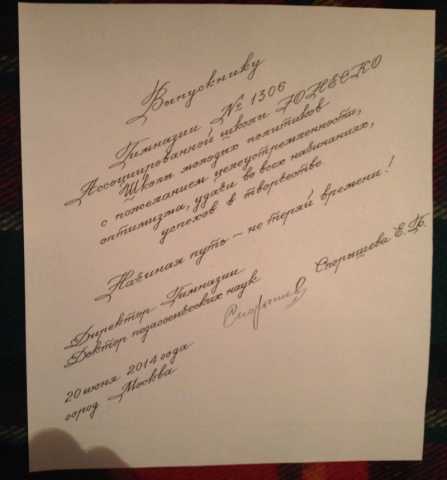 Выпускнику
Гимназии № 1306
Ассоциированной школы ЮНЕСКО
Школы молодых политиков
с пожеланием целеустремленности,
оптимизма, удачи во всех начинаниях,
успехов в творчестве
Начиная путь – не теряй времени!
Директор Гимназии
Доктор педагогических наук
Спорышева Е.Б.
20 июня 2014 года
город Москва